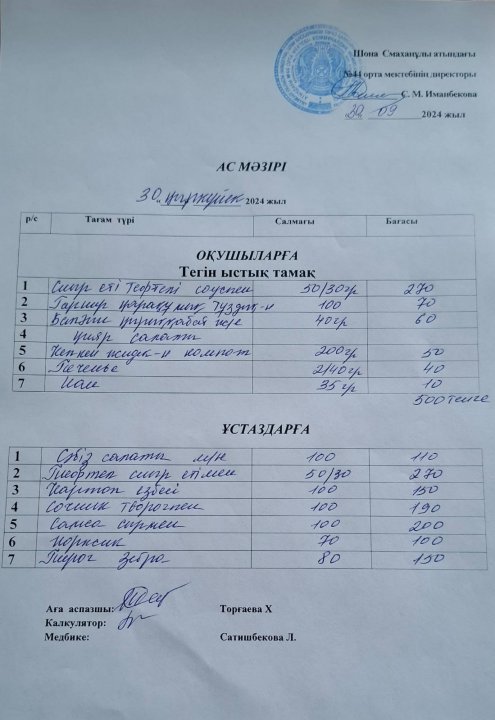 Шона Смаханұлы атындағы
№44 орта мектебінің директоры
С. М. Иманбекова
30 09 2024 жыл
АС МӘЗІРІ
30 қыркүйек 2024 жыл
р/с Тағам түрі Салмағы Бағасы
ОҚУШЫЛАРҒА
Тегін ыстық тамақ
1 Сиыр еті Тефтелі соуспен 50/30гр 270
2 Гарнир қарақұмық тұздық-н 100 70
3 40гр 60
4 қияр салаты
5 Кепкен жидек-н компот 200гр 50
6 Печенье 2/40гр 40
7 Нан 35гр 10
500тенге
ҰСТАЗДАРҒА
1 Сәбіз салаты 100 110
2 Тефтел сиыр етімен 50/30 270
3 Картоп езбесі 100 150
4 Сочник творогпен 100 190
5 Самса сырмен 100 200
6 70 100
7 Пирог Зебра 80 150
Аға аспазшы: Торғаева Х
Калкулятор:
Медбике: Сатишбекова Л.